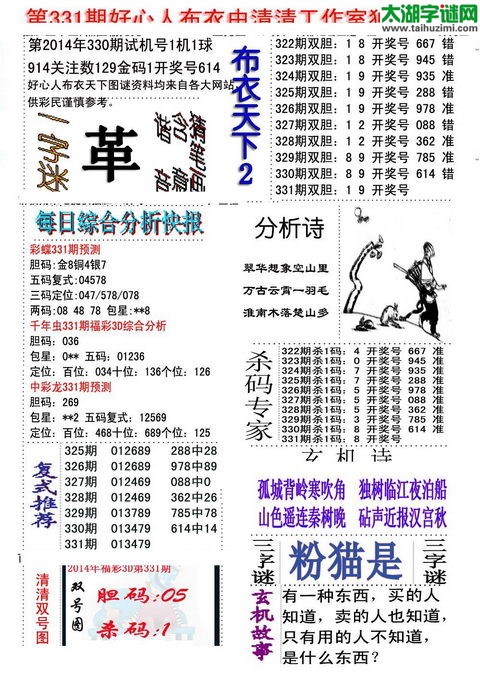 第331期好心人布衣虫清清工作室
太湖字谜网
www.taihuzimi.com
第2014年330期试机号1机1球
914关注数129金码1开奖号614
好心人布衣天下图谜资料均来自各大网站
供彩民谨慎参考。
革
布衣天下2
322期双胆：1 8 开奖号 667 错
323期双胆：1 8 开奖号 945 错
324期双胆：1 9 开奖号 935 准
325期双胆：1 9 开奖号 288 错
326期双胆：1 9 开奖号 978 准
327期双胆：1 2 开奖号 088 错
328期双胆：1 2 开奖号 362 准
329期双胆：8 9 开奖号 785 准
330期双胆：8 9 开奖号 614 错
331期双胆：1 9 开奖号
每日综合分析快报
彩蝶331期预测
胆码:金8铜4银7
五码复式:04578
三码定位:047/578/078
两码:08 48 78 包星:**8
千年虫331期福彩3D综合分析
胆码: 036
包星: 0** 五码: 01236
定位: 百位: 034十位: 136个位: 126
中彩龙331期预测
胆码: 269
包星: **2 五码复式: 12569
定位: 百位: 468十位: 689个位: 125
分析诗
翠华想象空山里
万古云霄一羽毛
淮南木落楚山多
杀码专家
322期杀1码: 4 开奖号 667 准
323期杀1码: 0 开奖号 945 准
324期杀1码: 7 开奖号 935 准
325期杀1码: 7 开奖号 288 准
326期杀1码: 5 开奖号 978 准
327期杀1码: 5 开奖号 088 准
328期杀1码: 5 开奖号 362 准
329期杀1码: 3 开奖号 785 准
330期杀1码: 8 开奖号 614 准
331期杀1码: 8 开奖号
玄机诗
孤城背岭寒吹角 独树临江夜泊船
山色遥连秦树晚 砧声近报汉宫秋
复式推荐
325期 012689 288中28
326期 012689 978中89
327期 012469 088中0
328期 012469 362中26
329期 013789 785中78
330期 013479 614中14
331期 013479
清清双号图
2014年福彩3D第331期
双号图
胆码:05
杀码:1
三字谜
粉猫是
三字谜
玄机故事
有一种东西，买的人
知道，卖的人也知道，
只有用的人不知道，
是什么东西？